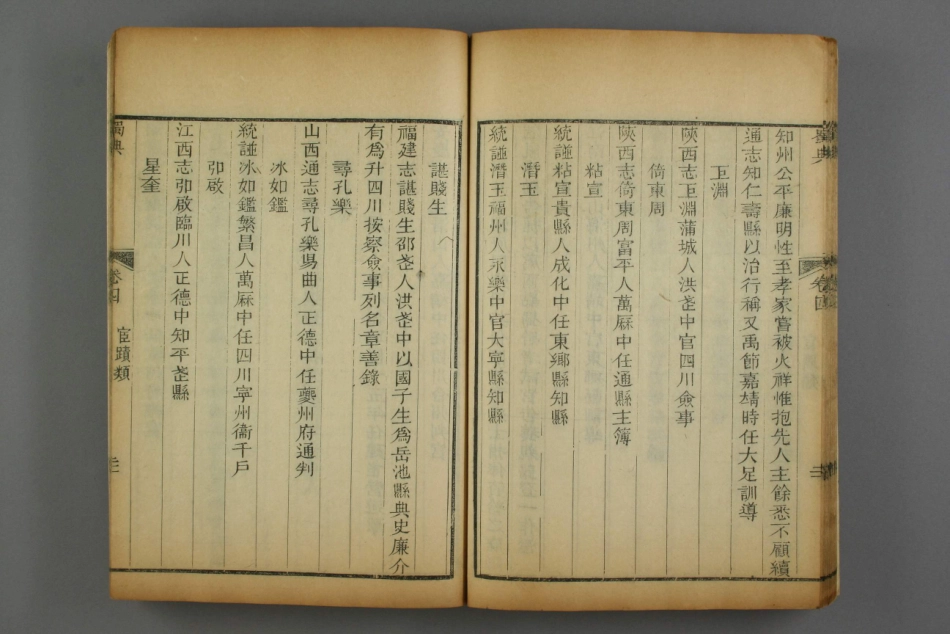 蜀典
卷四
知州公平廉明性至孝家嘗被火祥惟抱先人主餘悉不顧續
通志知仁壽縣以治行稱又禹節嘉靖時任大足訓導
巨淵
陝西志巨淵蒲城人洪武中官四川僉事
倚東周
陝西志倚東周富平人萬厤中任通縣主簿
粘宣
統譜粘宣貴縣人成化中任東鄉縣知縣
潛玉
統譜潛玉福州人永樂中官大寧縣知縣
諶賤生
福建志諶賤生邵武人洪武中以國子生爲岳池縣典史廉介
有爲升四川按察僉事列名章善錄
尋孔樂
山西通志尋孔樂曲人正德中任夔州府通判
冰如鑑
統譜冰如鑑繁昌人萬厤中任四川寧州衞千戸
啟
江西志啟臨川人正德中知平武縣
星奎
蜀典
卷四
宦蹟類